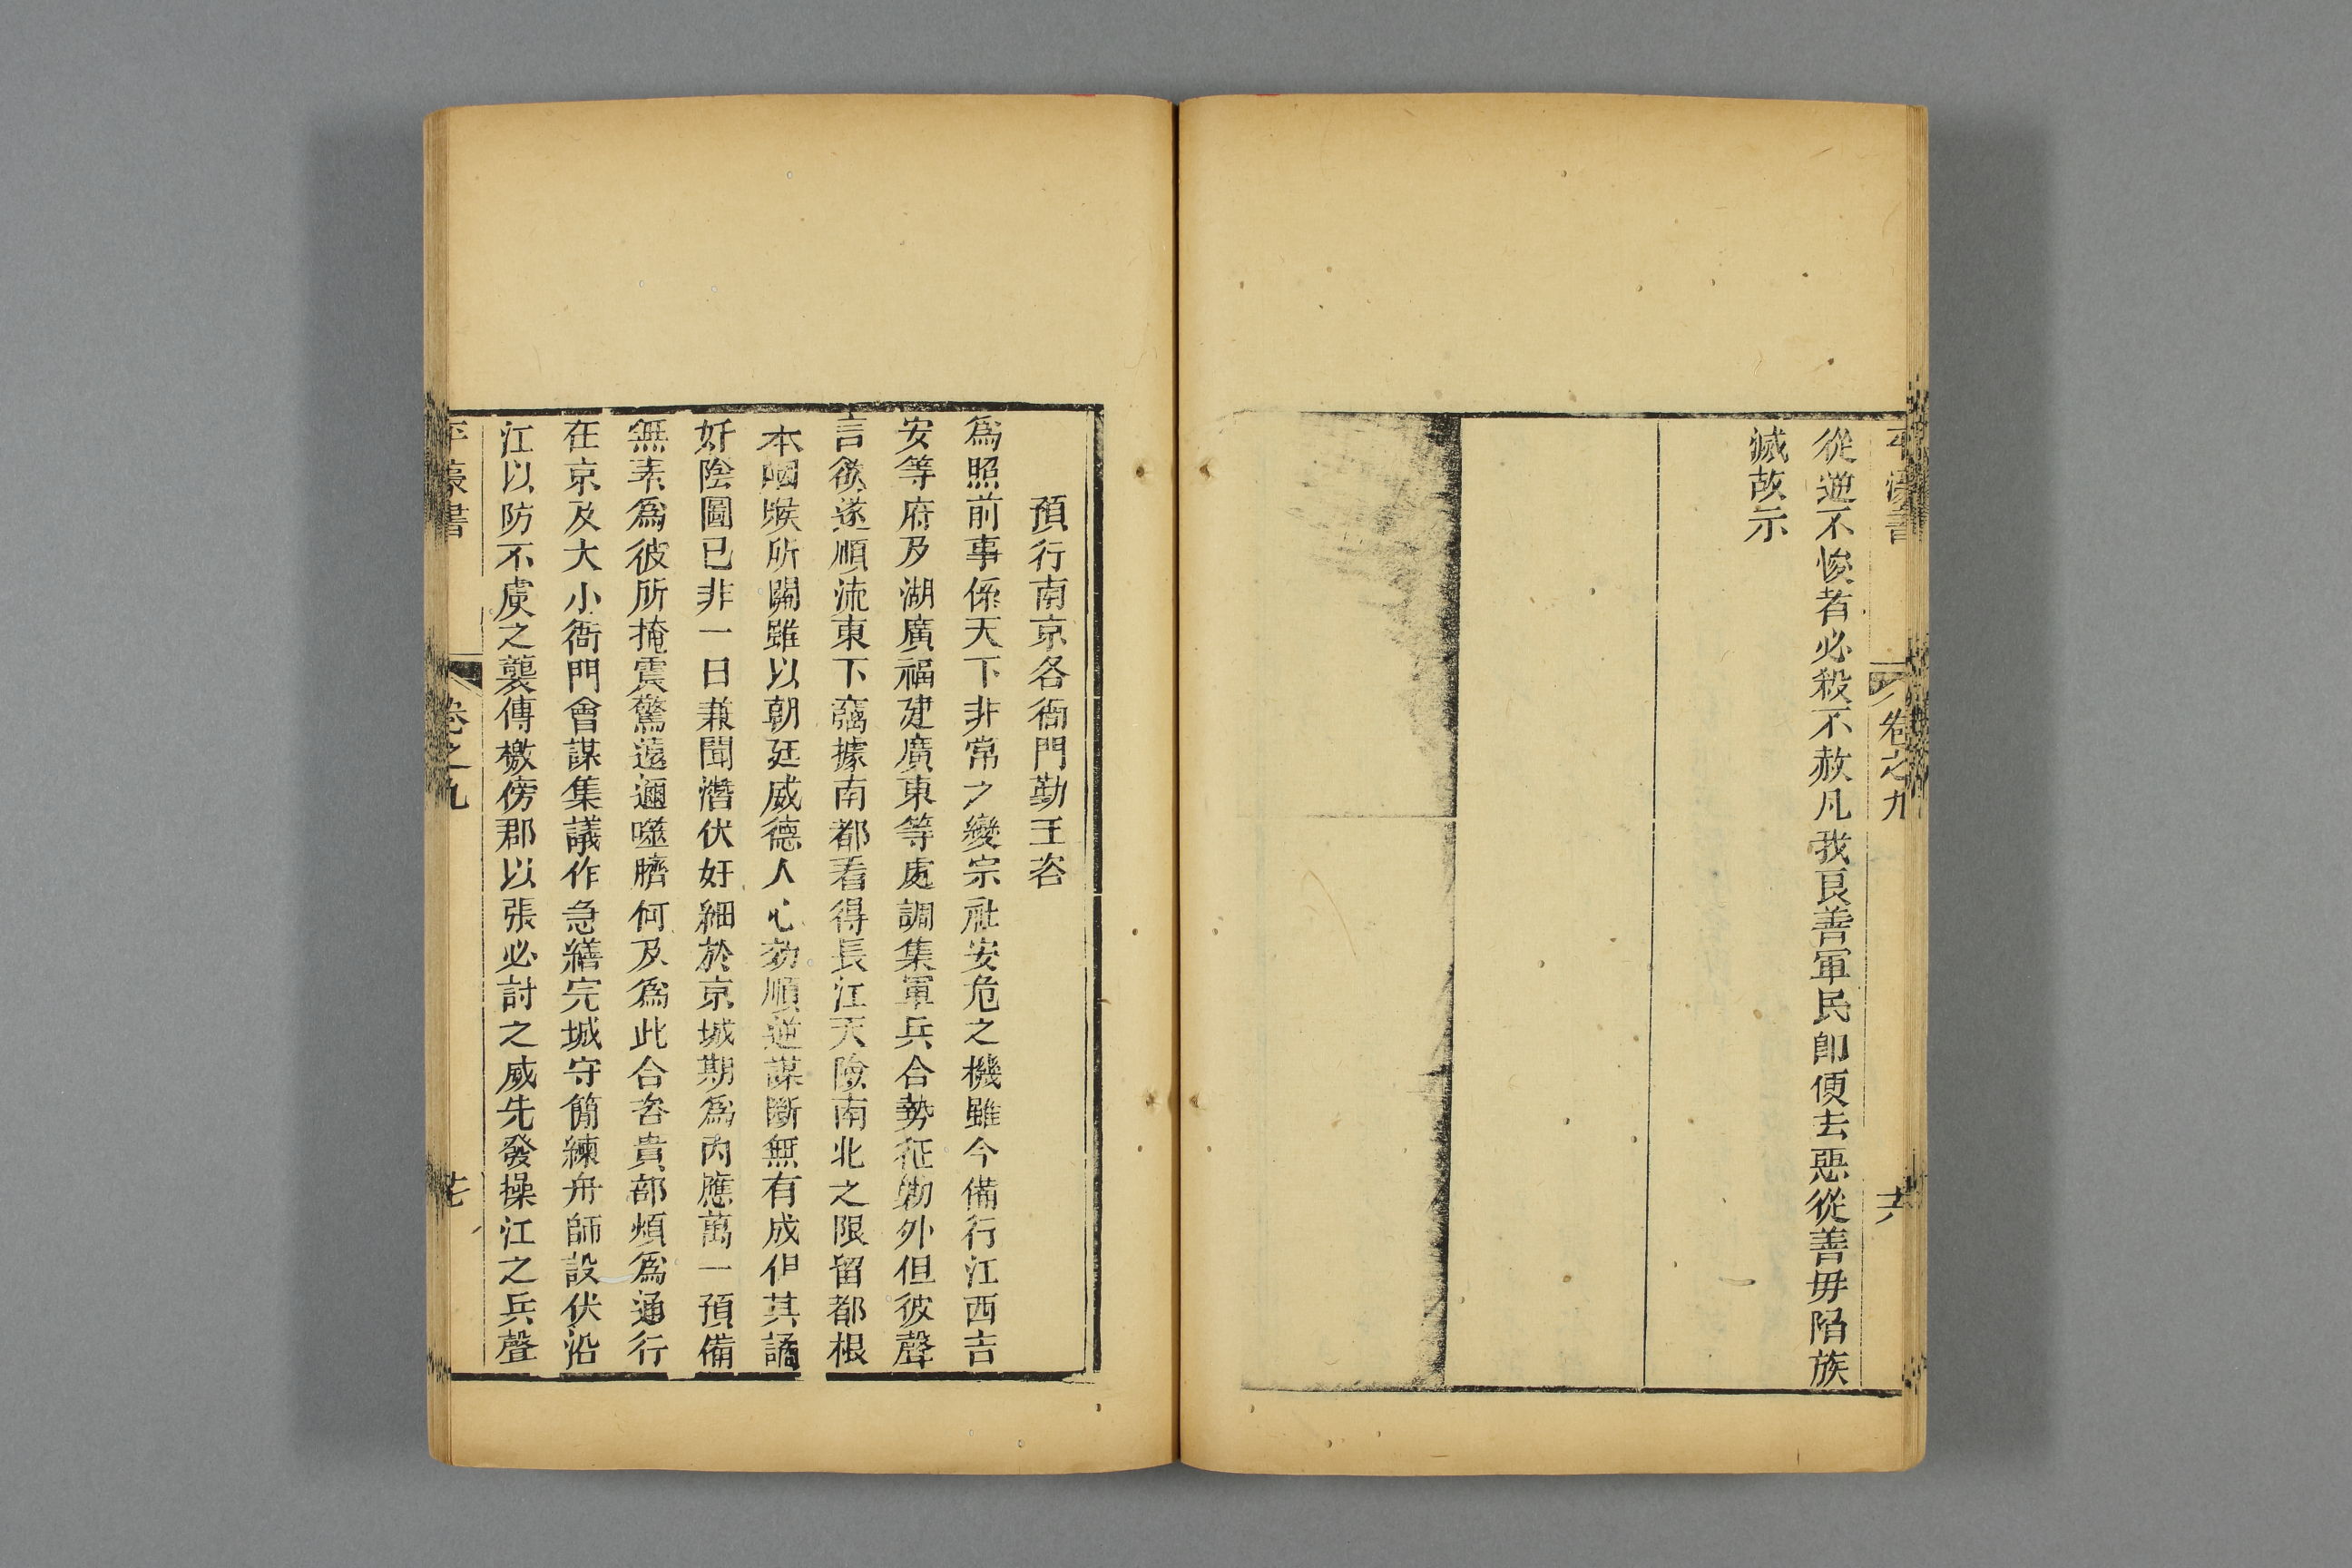 平濠書 卷之九 十六
從逆不悛者必殺不赦凡我良善軍民即便去惡從善毋陷族
滅故示
預行南京各衙門勤王咨
爲照前事係天下非常之變宗社安危之機雖今備行江西吉
安等府及湖廣福建廣東等處調集軍兵合勢征勦外但彼聲
言欲遂順流東下竊據南都看得長江天險南北之限留都根
本咽喉所關雖以朝廷威德人心効順逆謀斷無有成但其譎
奸陰圖已非一日兼聞潛伏奸細於京城期爲內應萬一預備
無素爲彼所掩震驚遠邇噬臍何及爲此合咨貴部煩爲通行
在京及大小衙門會謀集議作急繕完城守簡練舟師設伏沿
江以防不虞之襲傳檄傍郡以張必討之威先發操江之兵聲
平濠書 卷之九 十七